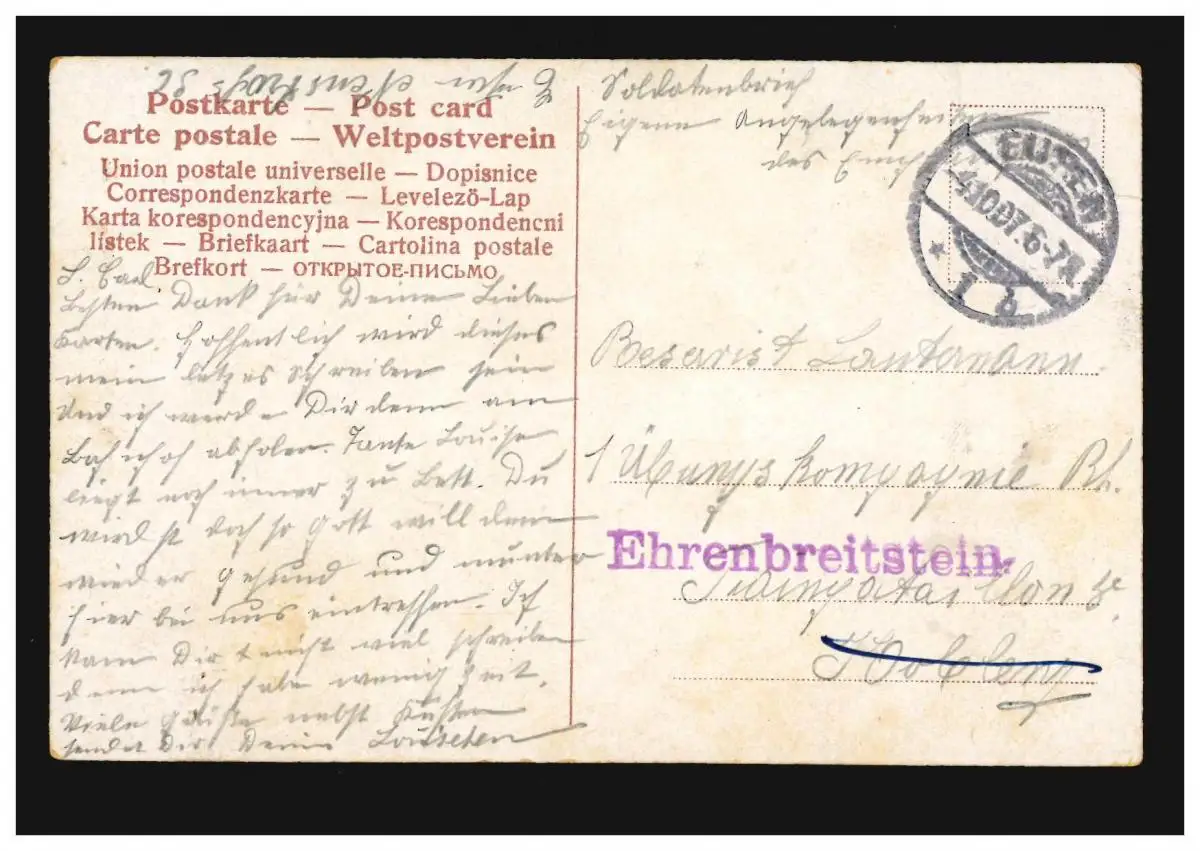 Postkarte — Post card
Carte postale — Weltpostverein
Union postale universelle — Dopisnice
Correspondenzkarte — Levelező-Lap
Karta korespondencyjna — Korespondencni
lístek — Briefkaart — Cartolina postale
Brefkort — ОТКРЫТОЕ-ПИСЬМО
L. Carl
Besten Dank für Deine Lieben
Karten. Hoffentlich wird dieses
mein letzes Schreiben sein
und ich werde Dir denn am
abholen. Tante Louise
liegt noch immer zu Bett. Du
wirdst doch so Gott will denn
wieder gesund und munter
hier bei uns eintreffen. Ich
kann Dir nicht viel schreiben
denn ich habe wenig Zeit.
Viele Grüße nebst Küssen
sendet Dir Deine Louischen
Soldatenbrief
Eigene Angelegenheiten
des
EUPEN
4.10.07.6-7N.
* 1 b
Lautermann
1 Übungskompagnie Rh.
Ehrenbreitstein
Koblenz